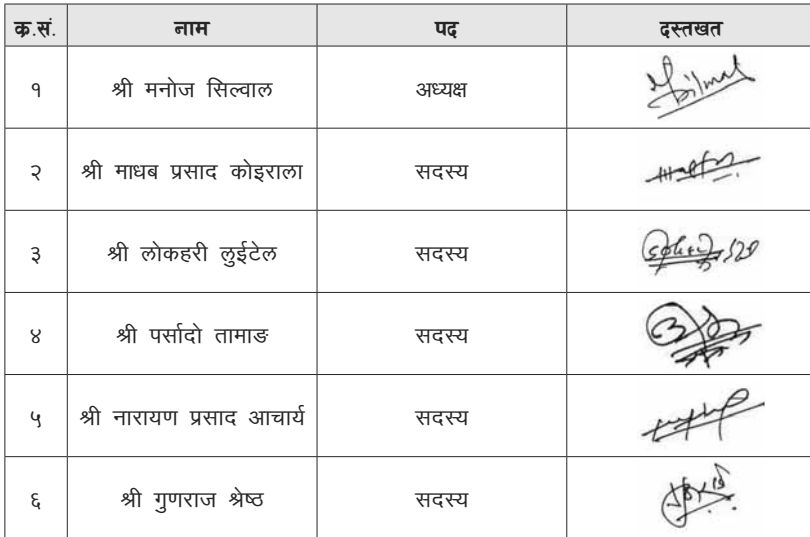 क.सं. नाम पद दस्तखत
१ श्री मनोज सिल्वाल अध्यक्ष
२ श्री माधब प्रसाद कोइराला सदस्य
३ श्री लोकहरी लुईटेल सदस्य
४ श्री पर्सादो तामाङ सदस्य
५ श्री नारायण प्रसाद आचार्य सदस्य
६ श्री गुणराज श्रेष्ठ सदस्य